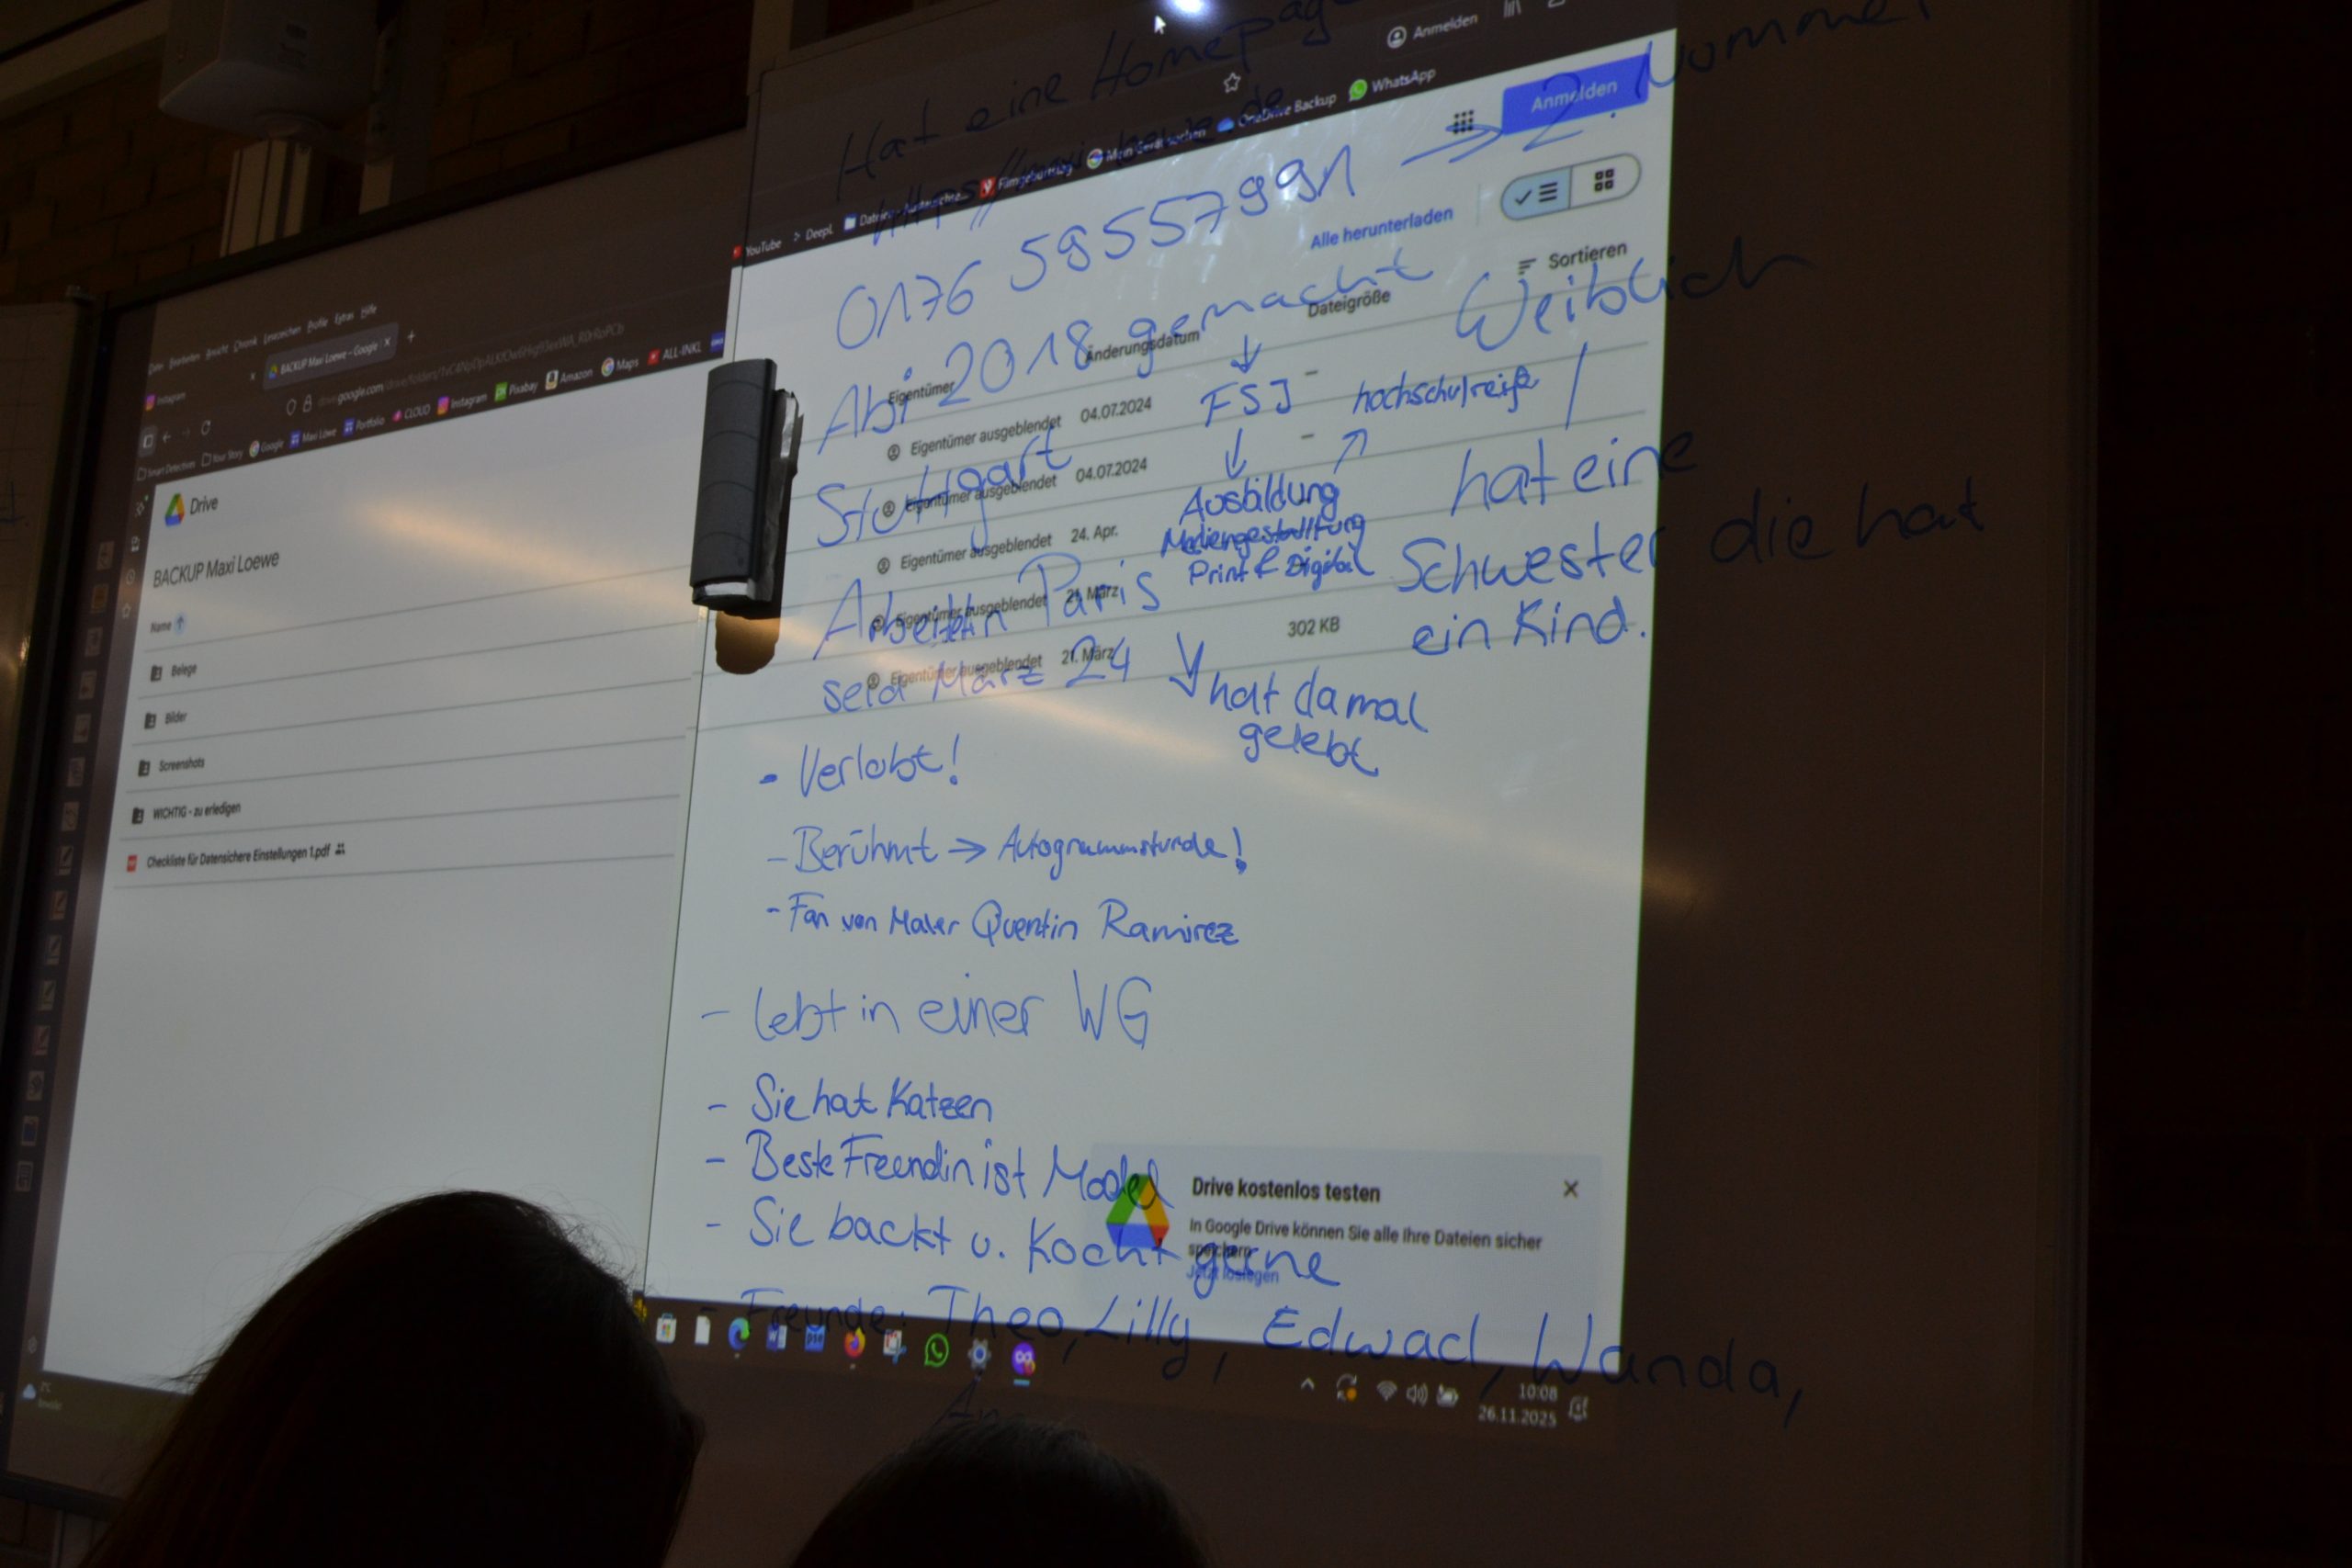 Datei Bearbeiten Ansicht Chronik Lesezeichen Profile Extras Hilfe
Instagram
BACKUP Maxi Loewe – Google
Smart Detectives Your Story Google Maxi Löwe Portfolio CLOUD Instagram Pixabay Amazon Maps ALL-INKL
YouTube DeepL OneDrive Backup WhatsApp
Anmelden
Drive
Anmelden
BACKUP Maxi Loewe
Alle herunterladen
Sortieren
Name Eigentümer Änderungsdatum Dateigröße
Belege Eigentümer ausgeblendet 04.07.2024 –
Bilder Eigentümer ausgeblendet 04.07.2024 –
Screenshots Eigentümer ausgeblendet 24. Apr.
WICHTIG - zu erledigen Eigentümer ausgeblendet 21. März
Checkliste für Datensichere Einstellungen 1.pdf Eigentümer ausgeblendet 21. März 302 KB
Drive kostenlos testen
In Google Drive können Sie alle Ihre Dateien sicher
speichern
Jetzt loslegen
10:08
26.11.2025
Hat eine Homepage
0176 59557991 → 2. Nummer
Abi 2018 gemacht
Weiblich
↓
FSJ
hochschulreife
↓ ↗
Stuttgart
Ausbildung
Mediengestalltung
Print & Digital
hat eine
Schwester die hat
ein Kind.
Arbeitet in Paris
seid März 24
↓ hat damal
gelebt
- Verlobt!
- Berühmt → Autogrammstunde!
- Fan von Maler Quentin Ramirez
- lebt in einer WG
- Sie hat Katzen
- Beste Freundin ist Model
- Sie backt u. Kocht gerne
- Freunde: Theo, Lilly, Edwad, Wanda,